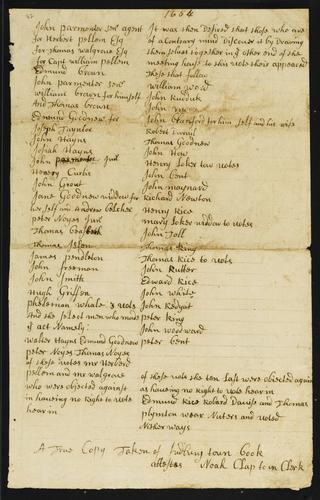 1654
John parmenter senr agent
for Herbert pellom Esq
for Thomas walgrave Esq
for Capt william pellom
Edmund brown
John parmenter senr
william brown for himself
And Thomas brown
Edmund Goodnow for
Joseph Taynlor
John Haynes
Josiah Haynes
John parmenter Jun
Henery Curtis
John Grout
Jane Goodnow widdow for
her self and Andrew belcher
peter Noyes Jun
Thomas
Thomas Aslon
James pendleton
John freeman
John Smith
Hugh Griffen
philemon whale 2 vots
And the select men who made
act Namely:
walter Hayne Edmund Goodnow
peter Noyes Thomas Noyes
of these votes mr Herberd
pellom and mr walgrave
who were objected against
in haveing no Right to vote
hear in
It was then desired that those who are
of a Contrary mind discover it by drawing
themselves together in y other end of the
meeting house to this vote their appeared
those that follow
william word
John Rudduk
John
John Stanford for him self and his wife
Robert
Thomas Goodnow
John How
Henry loker two votes
John bent
John maynard
Richard Newton
Henry Rice
mary loker widdow to votes
John Toll
Thomas King
Thomas Rice to vote
John Rutter
Edward Rice
John white
John
peter King
John woodward
peter bent
of these vots the ten last were objected against
as haveing no Right to vote hear in
Edmund Rice Roland and Thomas
plymton wear Nuters and voted
Nither ways
A True Copy Taken of Sudbury town book
attestes Noah Clap town Clerk